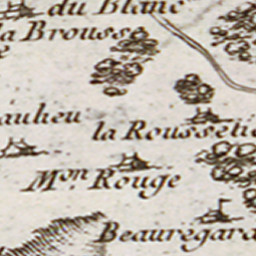 du Blanc
a Brousse
aulieu
la Roussetie
M.on Rouge
Beauregard